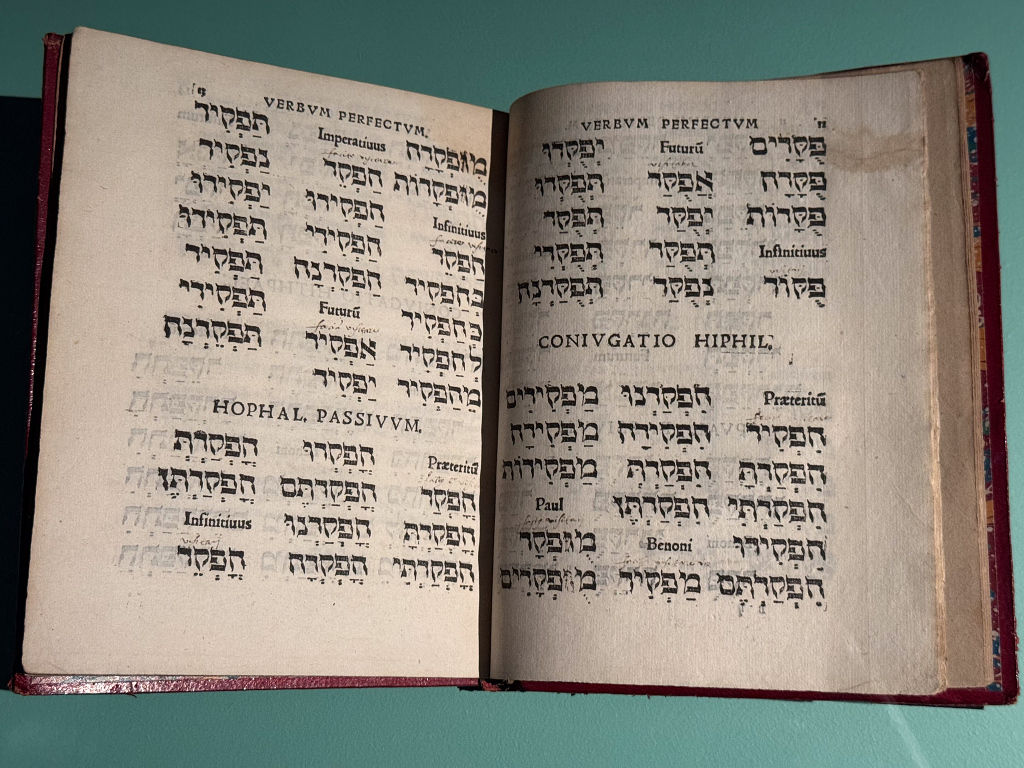 VERBVM PERFECTVM
פֻּקָּדִים
פֻּקָּדָה
פֻּקָּדוֹת
Infinitiuus
פֻּקּוֹד
Futurū
אֲפֻקַּד
יְפֻקַּד
תְּפֻקַּד
נְפֻקַּד
יְפֻקְּדוּ
תְּפֻקְּדוּ
תְּפֻקַּד
תְּפֻקְּדִי
תְּפֻקַּדְנָה
CONIVGATIO HIPHIL,
Præteritū
הִפְקִיד
הִפְקַדְתָּ
הִפְקַדְתִּי
הִפְקִידוּ
הִפְקַדְתֶּם
הִפְקַדְנוּ
הִפְקִידָה
הִפְקַדְתְּ
הִפְקַדְתֶּן
Benoni
מַפְקִיד
מַפְקִידִים
מַפְקִידָה
מַפְקִידוֹת
Paul
מֻופְקָד
מֻופְקָדִים
VERBVM PERFECTVM,
מֻופְקָדָה
מֻופְקָדוֹת
Infinitiuus
הַפְקֵד
בְּהַפְקִיד
כְּהַפְקִיד
לְהַפְקִיד
מֵהַפְקִיד
Imperatiuus
הַפְקֵד
הַפְקִידוּ
הַפְקִידִי
הַפְקֵדְנָה
Futurū
אַפְקִיד
יַפְקִיד
תַּפְקִיד
נַפְקִיד
יַפְקִידוּ
תַּפְקִידוּ
תַּפְקִיד
תַּפְקִידִי
תַּפְקֵדְנָה
HOPHAL, PASSIVVM,
Præteritū
הָפְקַד
הָפְקַדְתָּ
הָפְקַדְתִּי
הָפְקְדוּ
הָפְקַדְתֶּם
הָפְקַדְנוּ
הָפְקְדָה
הָפְקַדְתְּ
הָפְקַדְתֶּן
Infinitiuus
הָפְקֵד